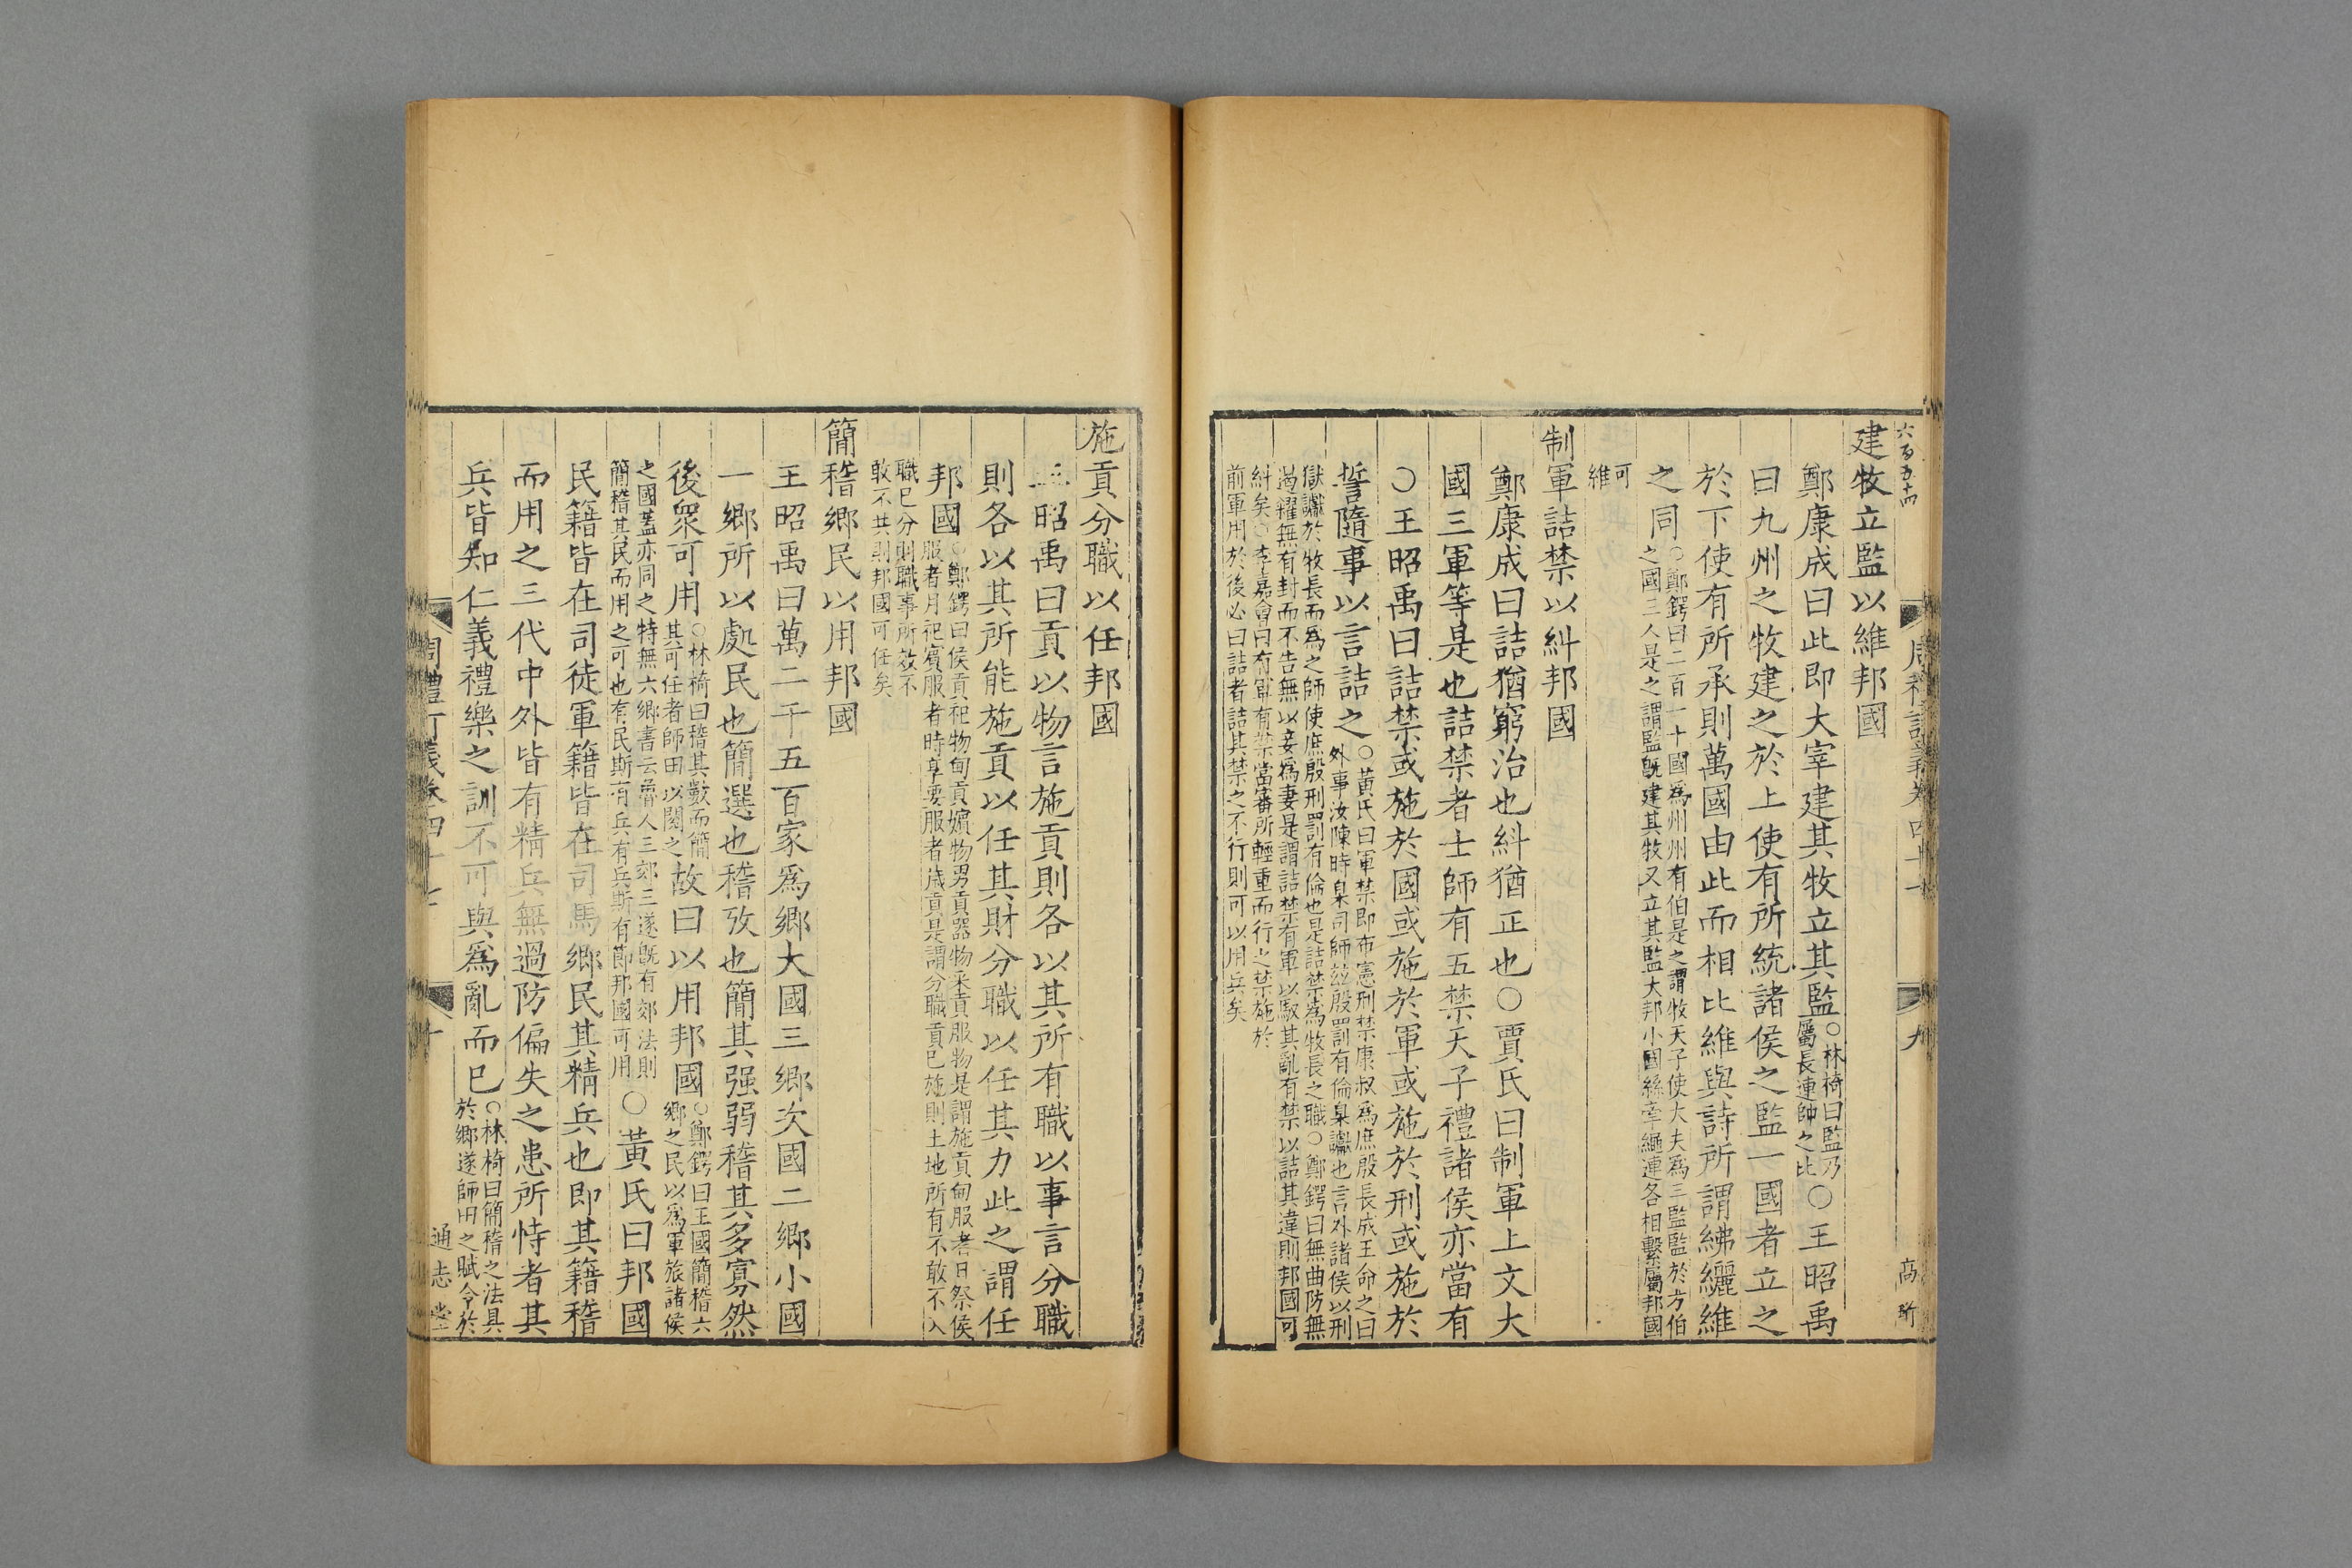 六百五十四
周禮訂義卷四十七
九
高珩
建牧立監以維邦國
鄭康成曰此即大宰建其牧立其監○林椅曰監乃屬長連帥之比○王昭禹
曰九州之牧建之於上使有所統諸侯之監一國者立之
於下使有所承則萬國由此而相比維與詩所謂紼纚維
之同○鄭鍔曰二百一十國為州州有伯是之謂牧天子使大夫為三監監於方伯之國三人是之謂監旣建其牧又立其監大邦小國絲牽繩連各相繫屬邦國
可維
制軍詰禁以糾邦國
鄭康成曰詰猶窮治也糾猶正也○賈氏曰制軍上文大
國三軍等是也詰禁者士師有五禁天子禮諸侯亦當有
○王昭禹曰詰禁或施於國或施於軍或施於刑或施於
誓隨事以言詰之○黃氏曰軍禁即布憲刑禁康叔為庶殷長成王命之曰外事汝陳時臬司師茲殷罰有倫臬讞也言外諸侯以刑
獄讞於牧長而為之師使庶殷刑罰有倫也是詰禁為牧長之職○鄭鍔曰無曲防無遏糴無有封而不告無以妾為妻是謂詰禁有軍以馭其亂有禁以詰其違則邦國可
糾矣○李嘉會曰有軍有禁當審所輕重而行之禁施於前軍用於後必曰詰者詰其禁之不行則可以用兵矣
施貢分職以任邦國
王昭禹曰貢以物言施貢則各以其所有職以事言分職
則各以其所能施貢以任其財分職以任其力此之謂任
邦國○鄭鍔曰侯貢祀物甸貢嬪物男貢器物采貢服物是謂施貢甸服者日祭侯服者月祀賓服者時享要服者歲貢是謂分職貢已施則土地所有不敢不入
職已分則職事所效不敢不共則邦國可任矣
簡稽鄉民以用邦國
王昭禹曰萬二千五百家為鄉大國三鄉次國二鄉小國
一鄉所以處民也簡選也稽攷也簡其强弱稽其多寡然
後衆可用○林椅曰稽其數而簡其可任者師田以閱之故曰以用邦國○鄭鍔曰王國簡稽六鄉之民以為軍旅諸侯
之國蓋亦同之特無六鄉書云魯人三郊三遂旣有郊法則簡稽其民而用之可也有民斯有兵有兵斯有節邦國可用○黃氏曰邦國
民籍皆在司徒軍籍皆在司馬鄉民其精兵也即其籍稽
而用之三代中外皆有精兵無過防偏失之患所恃者其
兵皆知仁義禮樂之訓不可與為亂而已○林椅曰簡稽之法具於鄉遂師田之賦令於
周禮訂義卷四十七
十
通志堂